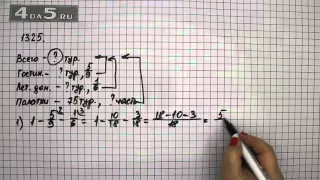 4DA5.RU
1325.
Всего - ? тур.
Гостин. - ? тур., 5/9
Лет. дом. - ? тур., 1/6
Палатки - 75 тур., ? часть
1) 1 - 5/9 - 1/6 = 1 - 10/18 - 3/18 = (18-10-3)/18 = 5